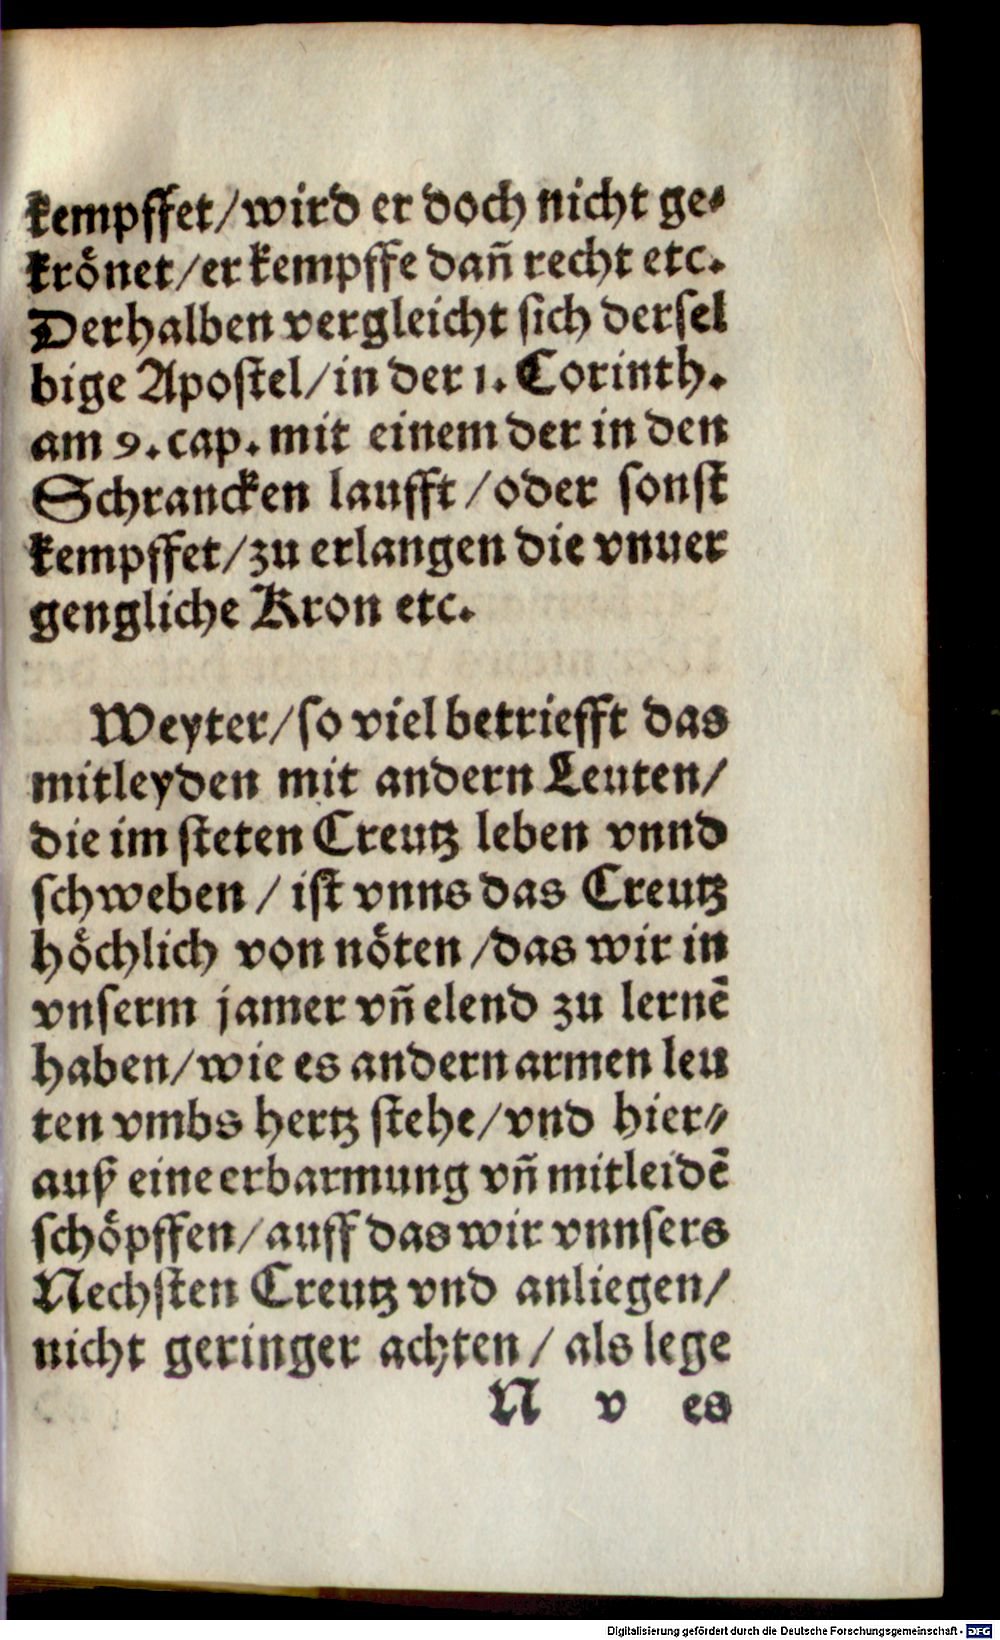 kempffet/wird er doch nicht ge-
krönet/er kempffe dañ recht etc.
Derhalben vergleicht sich dersel
bige Apostel/in der 1. Corinth.
am 9. cap. mit einem der in den
Schrancken laufft/oder sonst
kempffet/zu erlangen die vnuer
gengliche Kron etc.
Weyter/so viel betriefft das
mitleyden mit andern Leuten/
die im steten Creutz leben vnnd
schweben/ist vnns das Creutz
höchlich von nöten/das wir in
vnserm jamer vñ elend zu lernẽ
haben/wie es andern armen leu
ten vmbs hertz stehe/vnd hier-
auß eine erbarmung vñ mitleidẽ
schöpffen/auff das wir vnnsers
Nechsten Creutz vnd anliegen/
nicht geringer achten/als lege
N v es
Digitalisierung gefördert durch die Deutsche Forschungsgemeinschaft - DFG